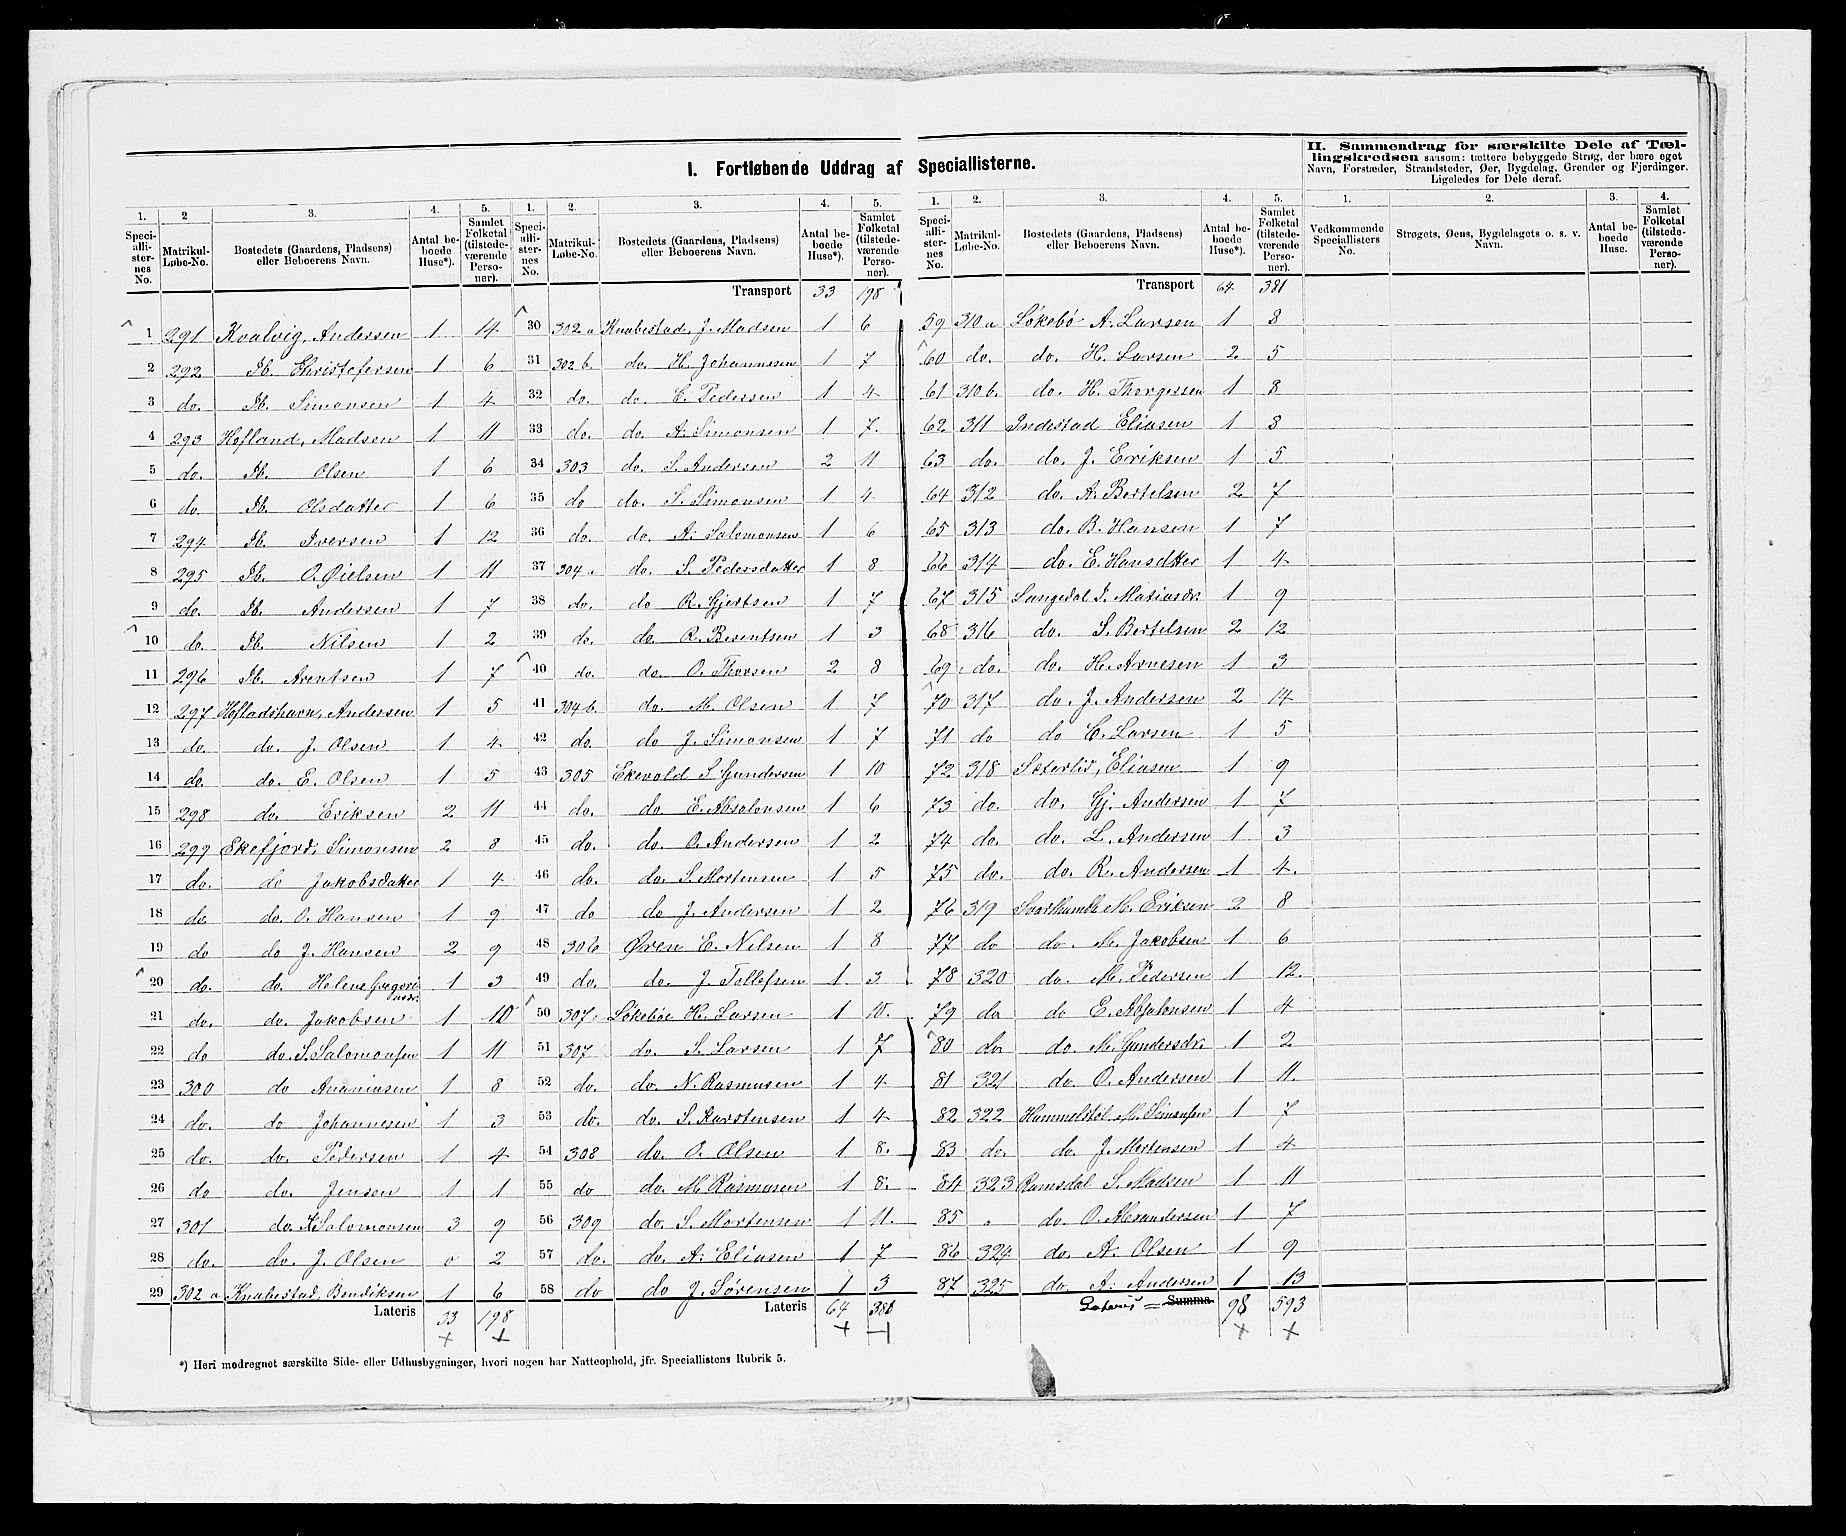 I. Fortløbende Uddrag af Speciallisterne.
II. Sammendrag for særskilte Dele af Tællingskredsen saasom: tættere bebyggede Strøg, der bære eget Navn, Forstæder, Strandsteder, Øer, Bygdelag, Grender og Fjerdinger. Ligeledes for Dele deraf.
1. 2 3. 4. 5.
Speciallisternes No. Matrikul-Løbe-No. Bostedets (Gaardens, Pladsens) eller Beboerens Navn. Antal beboede Huse*). Samlet Folketal (tilstedeværende Personer).
1 291 Kvalvig, Andersen 1 14
2 292 Ib. Christofersen 1 6
3 do. Ib. Simonsen 1 4
4 293 Hofland, Madsen 1 11
5 do. Ib. Olsen 1 6
6 do. Ib. Olsdatter 1 6
7 294 Ib. Iversen 1 12
8 295 Ib. O. Øielsen 1 11
9 do. Ib. Andersen 1 7
10 do. Ib. Nilsen 1 2
11 296 Ib. Arentsen 1 7
12 297 Hofladshavn, Andersen 1 5
13 do. do. J. Olsen 1 4
14 do. do. E. Olsen 1 5
15 298 do. Eriksen 2 11
16 299 Ekefjord, Simonsen 2 8
17 do. do Jakobsdatter 1 4
18 do do. O. Hansen 1 9
19 do do J. Hansen 2 9
20 do. do. Helene Gregoriusdr. 1 3
21 do. do. Jakobsen 1 10
22 do do. S. Salomonsen 1 11
23 300 do Ananiasen 1 8
24 do. do Johannesen 1 3
25 do. do. Pedersen 1 4
26 do do. Jensen 1 1
27 301 do. K Salomonsen 3 9
28 do. do. J. Olsen 0 2
29 302 a Knabestad, Bendiksen 1 6
Lateris 33 198
1. 2. 3. 4. 5.
Speciallisternes No. Matrikul-Løbe-No. Bostedets (Gaardens, Pladsens) eller Beboerens Navn. Antal beboede Huse*). Samlet Folketal (tilstedeværende Personer).
Transport 33 198
30 302 a Knabestad, J. Madsen 1 6
31 302 b. do. H. Johannesen 1 7
32 do. do. E. Pedersen 1 4
33 do. do. A. Simonsen 1 7.
34 303 do. S. Andersen 2 11
35 do do. S. Simonsen 1 4
36 do. do. A. Salomonsen 1 6
37 304 a do. S. Pedersdatter 1 8
38 do. do R. Gjertsen 1 7
39 do. do. R. Berentsen 1 3
40 do. do. O. Thorsen 2 8
41 304 b. do. M. Olsen 1 7
42 do. do J. Simonsen 1 7
43 305 Ekevold S Gundersen 1 10
44 do. do. E. Absalonsen 1 6
45 do. do. O. Andersen 1 2
46 do. do. S. Mortensen 1 5
47 do do J. Andersen 1 2
48 306 Øren E. Nilsen 1 8
49 do. do. J. Tollefsen 1 3
50 307 Løkebøe H. Larsen 1 10.
51 307 do. S. Larsen 1 7
52 do. do. N. Rasmusen 1 4
53 do. do. S. Karstensen 1 4
54 308 do. O. Olsen 1 8.
55 do do. M. Rasmusen 1 8.
56 309 do. S. Mortensen 1 11.
57 do. do. A. Eliasen 1 7
58 do do J. Sørensen 1 3
Lateris 64 381
1. 2. 3. 4. 5.
Speciallisternes No. Matrikul-Løbe-No. Bostedets (Gaardens, Pladsens) eller Beboerens Navn. Antal beboede Huse*). Samlet Folketal (tilstedeværende Personer).
Transport 64 381
59 310 a Løkebö A. Larsen 1 8
60 do. do. H. Larsen 2 5
61 310 b. do. H. Thorgersen 1 8
62 311 Indestad Eliasen 1 8
63 do. do. J. Eriksen 1 5
64 312 do. A. Bertelsen 2 7
65 313 do. B. Hansen 1 7
66 314 do. E. Hansdtter 1 4
67 315 Langedal I. Matiasdr. 1 9
68 316 do. S. Bertelsen 2 12
69 do. do. H. Arnesen 1 3
70 317 do. J. Andersen 2 14
71 do do C. Larsen 1 5
72 318 Sæterlid, Eliasen 1 9
73 do. do. Gj. Andersen 1 7
74 do. do. L. Andersen 1 3
75 do. do. R. Andersen 1 4.
76 319 M. Eriksen 2 8
77 do do. M. Jakobsen 1 6
78 320 do. M. Pedersen 1 12.
79 do do E. Absalonsen 1 4
80 do. do. M. Gundersdr. 1 2
81 321 do O. Andersen 1 11.
82 322 M. Simonsen 1 7
83 do. do. J. Mortensen 1 4
84 323 Ramsdal S. Madsen 1 11
85 " do. O. Alexandersen 1 7
86 324 do. A. Olsen 1 9
87 325 do A. Andersen 1 13
Lateris = Summa 98 593
1. 2. 3. 4.
Vedkommende Speciallisters No. Strøgets, Øens, Bygdelagets o. s. v. Navn. Antal beboede Huse. Samlet Folketal (tilstedeværende Personer).
*) Heri medregnet særskilte Side- eller Udhusbygninger, hvori nogen har Natteophold, jfr. Speciallistens Rubrik 5.